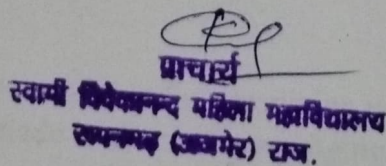 प्राचार्य
स्वामी विवेकानन्द महिला महाविद्यालय
(अजमेर) राज.